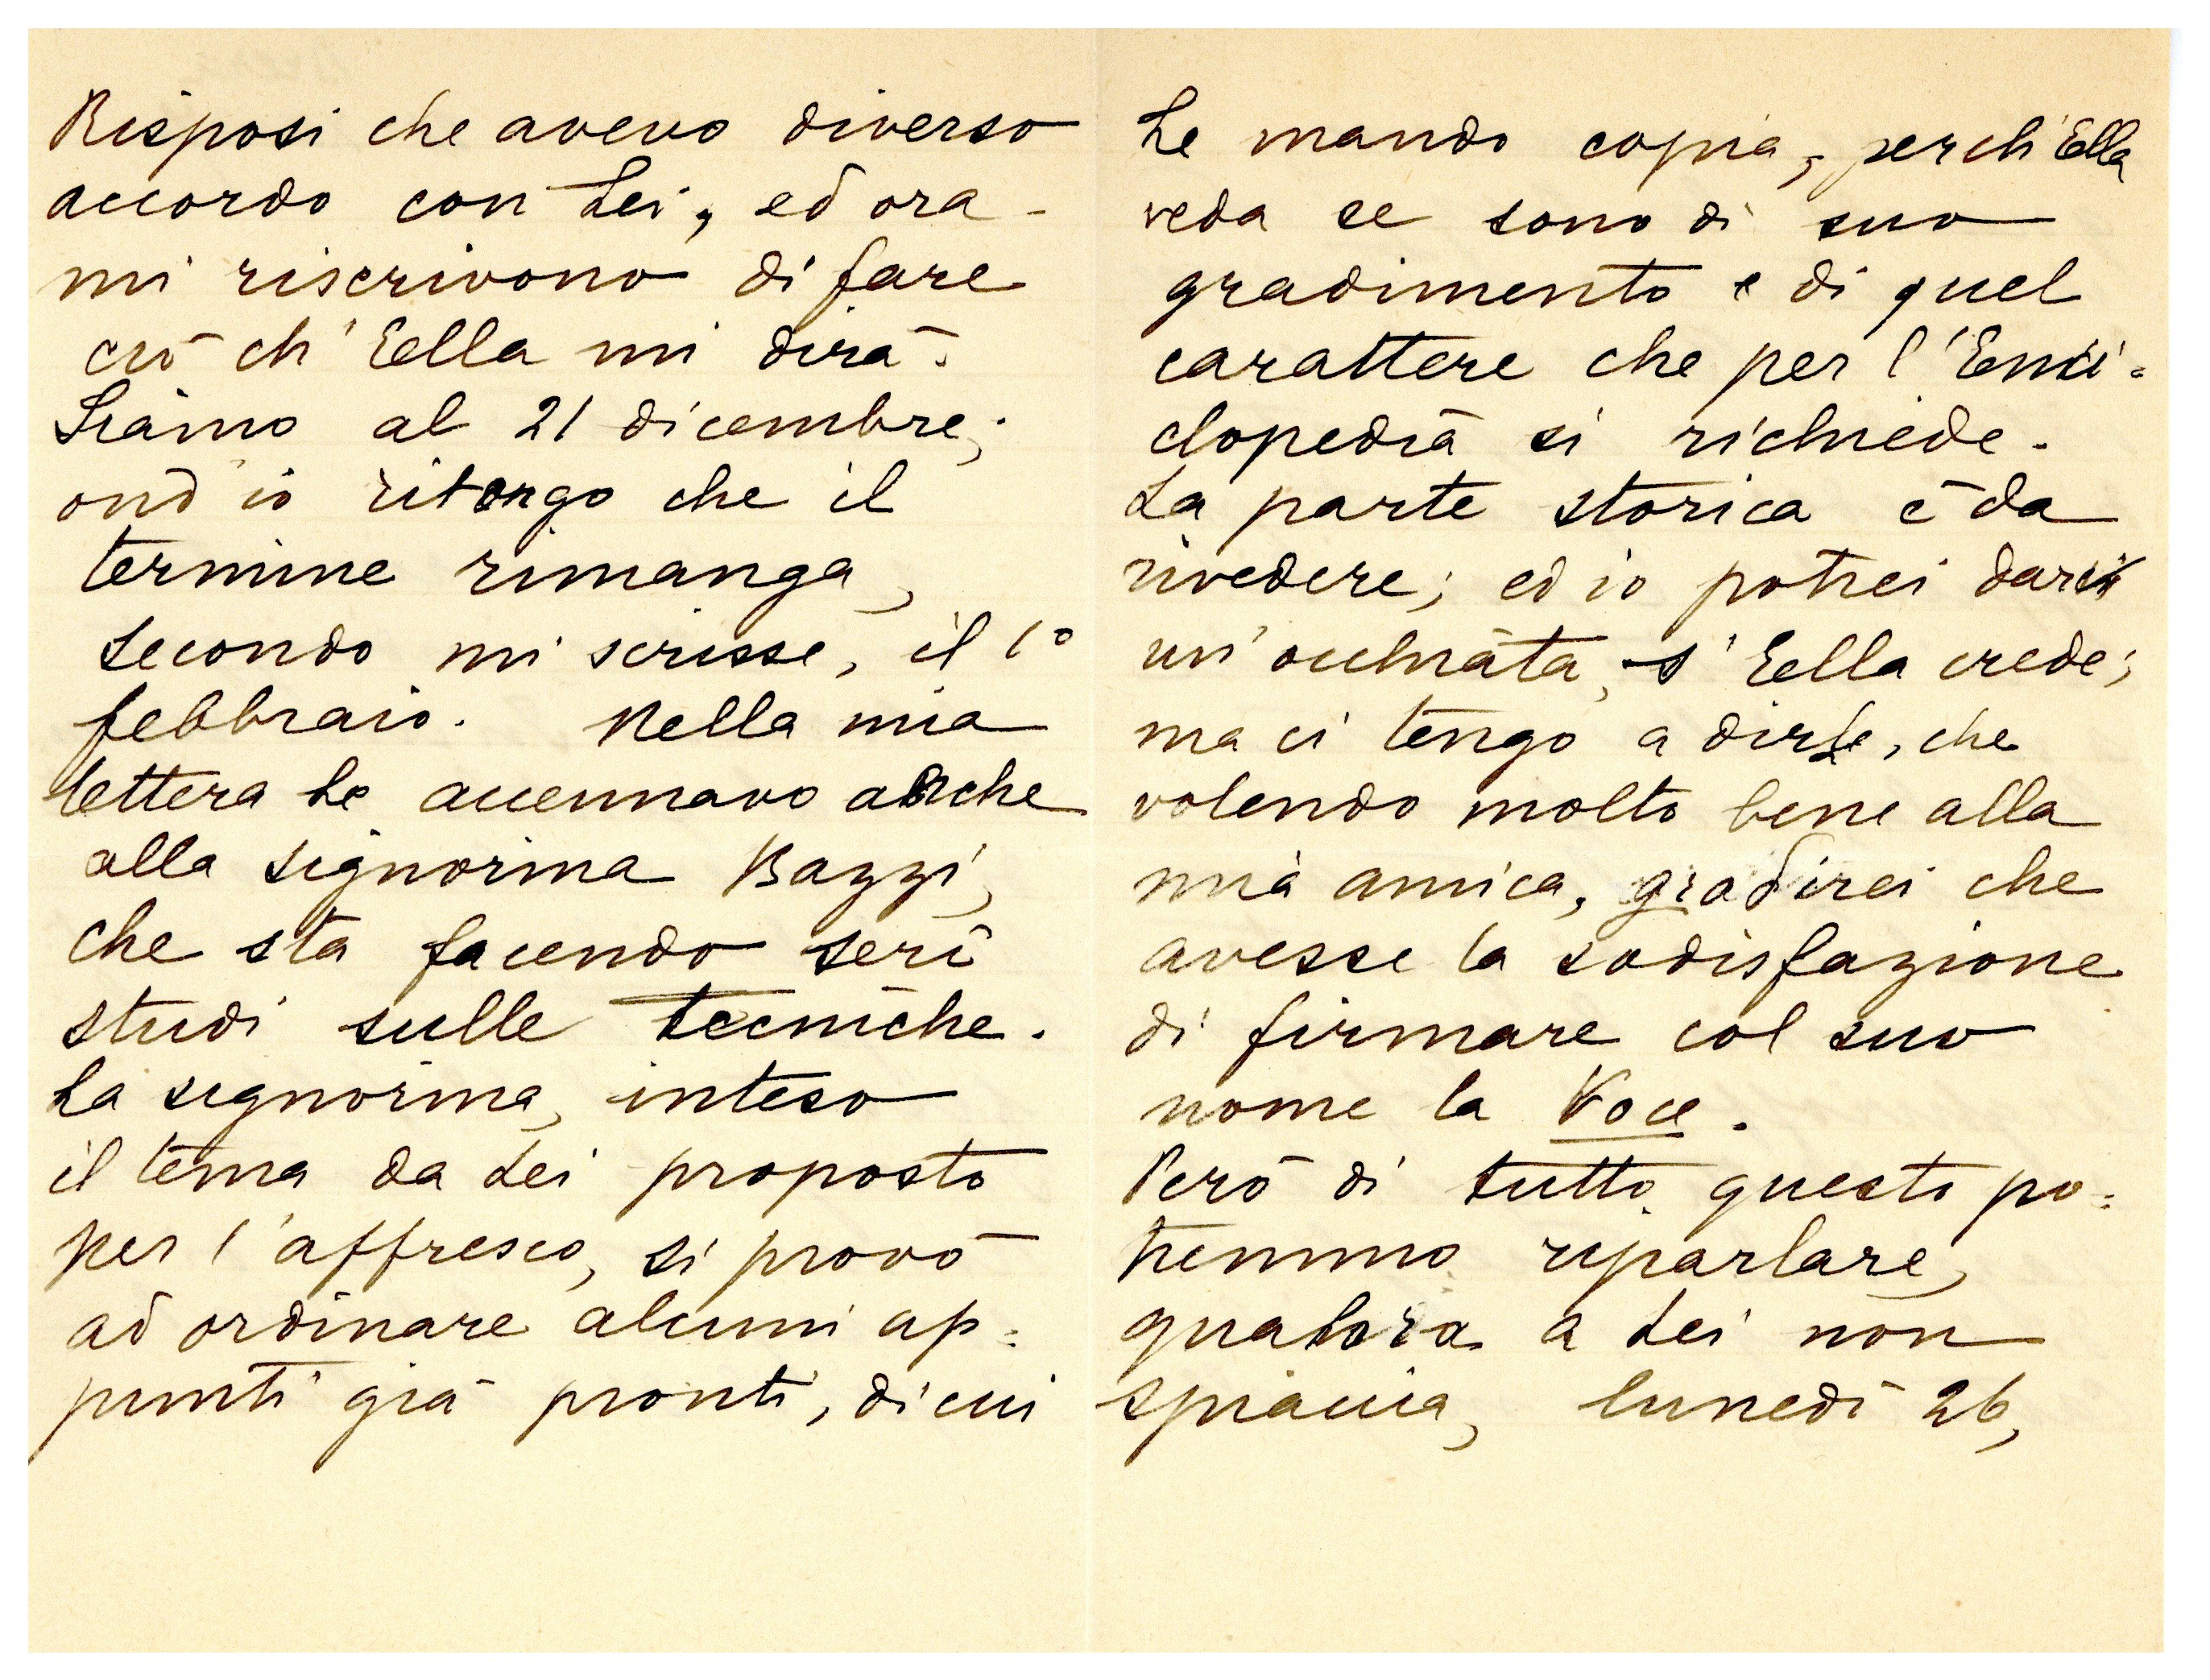 Risposi che avevo diverso
accordo con Lei, ed ora
mi riscrivono di fare
ciò ch'Ella mi dirà.
Siamo al 21 dicembre;
ond'io ritengo che il
termine rimanga,
secondo mi scrisse, il 1°
febbraio. Nella mia
lettera Le accennavo anche
alla signorina Bazzi,
che sta facendo seri
studi sulle tecniche.
La signorina, inteso
il tema da Lei proposto
per l'affresco, si provò
ad ordinare alcuni ap=
punti già pronti, di cui
Le mando copia, perch'Ella
veda se sono di suo
gradimento e di quel
carattere che per l'Enci=
clopedia si richiede.
La parte storica è da
rivedere; ed io potrei darci
un'occhiata, s'Ella crede;
ma ci tengo a dirLe, che
volendo molto bene alla
mia amica, gradirei che
avesse la sodisfazione
di firmare col suo
nome la Voce.
Però di tutto questo po=
tremmo riparlare,
qualora a Lei non
spiaccia, lunedì 26,